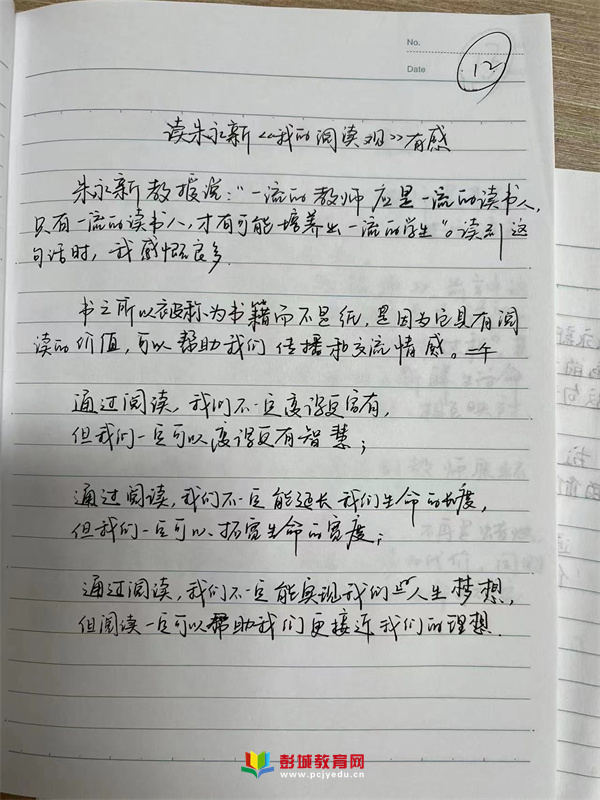 No.
Date
12
读朱永新《我的阅读观》有感
朱永新教授说:"一流的教师应是一流的读书人,
只有一流的读书人,才有可能培养出一流的学生"。读到这
句话时,我感慨良多.
书之所以被称为书籍而不是纸,是因为它具有阅
读的价值,可以帮助我们传播和交流情感。
通过阅读,我们不一定变得更富有,
但我们一定可以变得更有智慧;
通过阅读,我们不一定能延长我们生命的长度,
但我们一定可以拓宽生命的宽度;
通过阅读,我们不一定能实现我们的人生梦想,
但阅读一定可以帮助我们更接近我们的理想.
彭城教育网
www.pcjyedu.cn